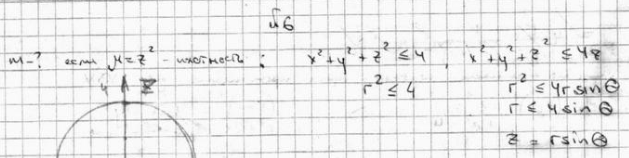 №6
m-? если μ=z² - плотность : x²+y²+z² ≤ 4, x²+y²+z² ≤ 4z
r² ≤ 4 r² ≤ 4r sinΘ
r ≤ 4 sinΘ
z = r sinΘ
z